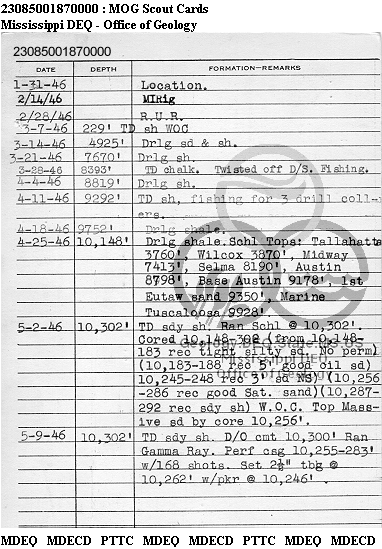 23085001870000 : MOG Scout Cards
Mississippi DEQ - Office of Geology
23085001870000
DATE DEPTH FORMATION—REMARKS
1-31-46 Location.
2/14/46 MIRig
2/28/46 R.U.R.
3-7-46 229' TD sh WOC
3-14-46 4925' Drlg sd & sh.
3-21-46 7670' Drlg sh.
3-28-46 8393' TD chalk. Twisted off D/S. Fishing.
4-4-46 8819' Drlg sh.
4-11-46 9292' TD sh, fishing for 3 drill coll-
ers.
4-18-46 9752' Drlg shale.
4-25-46 10,148' Drlg shale.Schl Tops: Tallahatta
3760', Wilcox 3870', Midway
7413', Selma 8190', Austin
8798', Base Austin 9178', 1st
Eutaw sand 9350', Marine
Tuscaloosa 9928'.
5-2-46 10,302' TD sdy sh. Ran Schl @ 10,302'.
Cored 10,148-302 (from 10,148-
183 rec tight silty sd. No perm)
(10,183-188 rec 5' good oil sd)
10,245-248 rec 3' sd NS) (10,256
-286 rec good Sat. sand)(10,287-
292 rec sdy sh) W.O.C. Top Mass-
ive sd by core 10,256'.
5-9-46 10,302' TD sdy sh. D/O cmt 10,300' Ran
Gamma Ray. Perf csg 10,255-283'
w/168 shots. Set 2½" tbg @
10,262' w/pkr @ 10,246'.
MDEQ MDECD PTTC MDEQ MDECD PTTC MDEQ MDECD